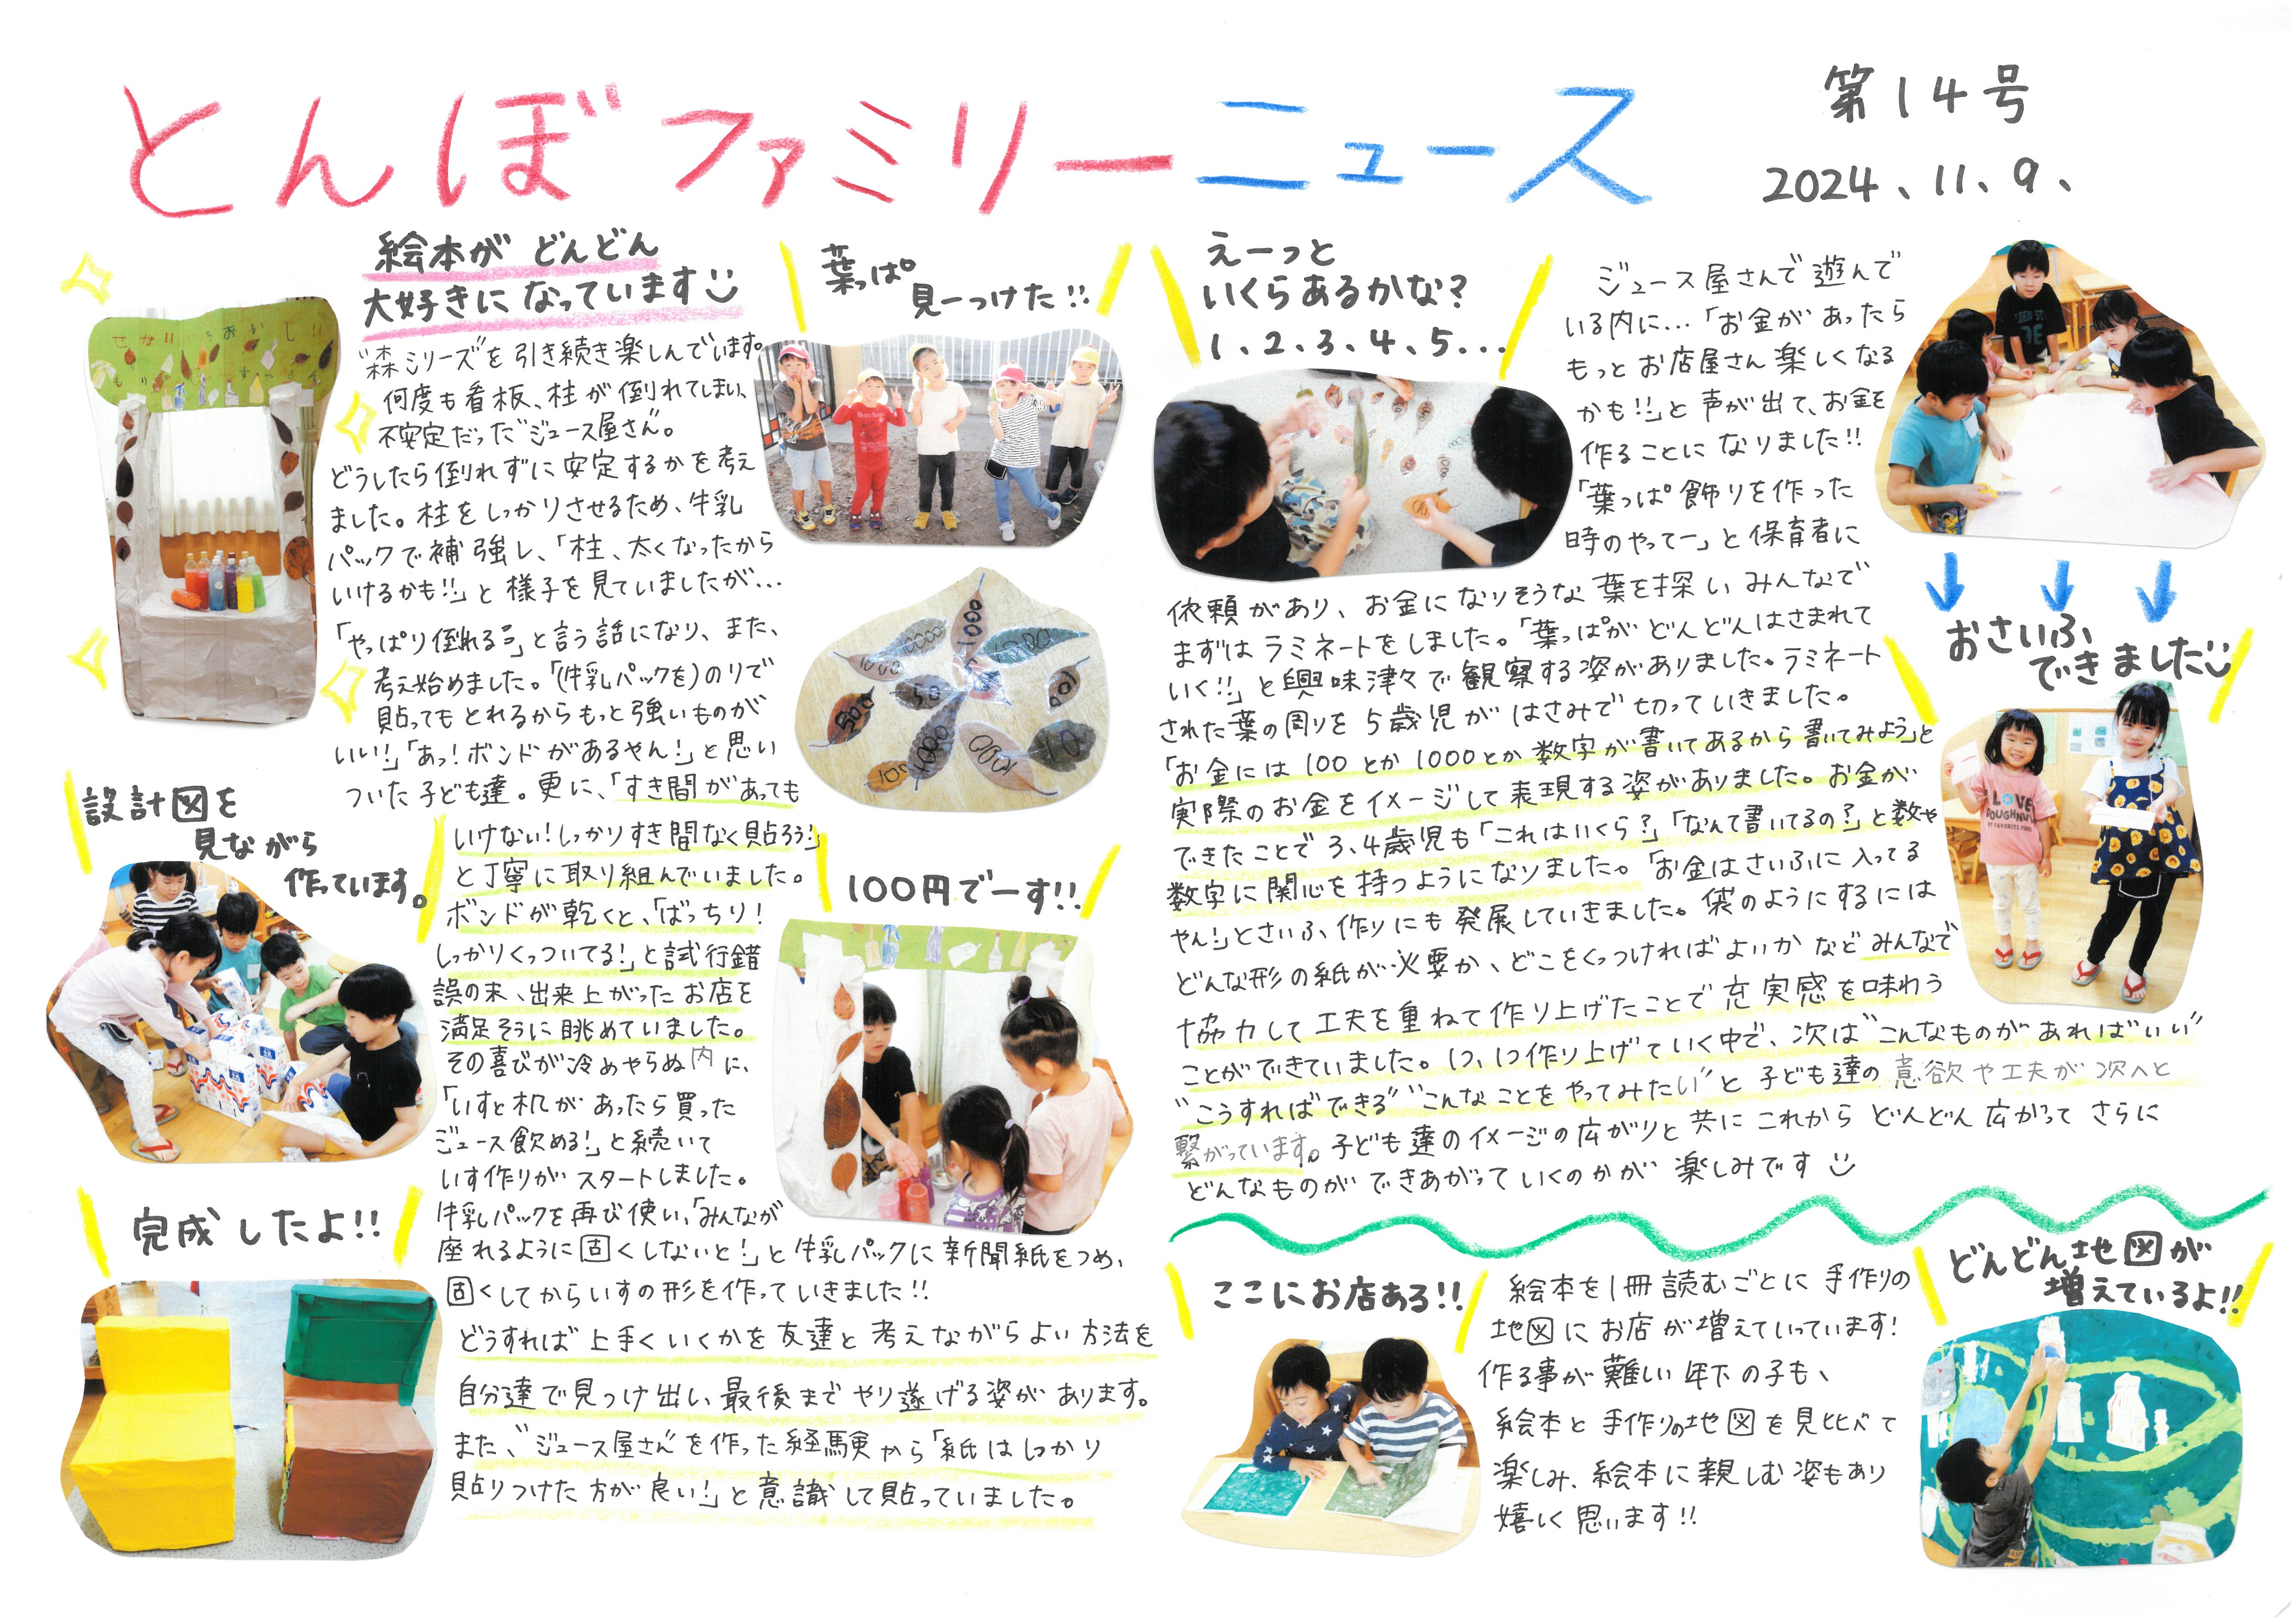 とんぼファミリーニュース
第14号
2024、11、9、
絵本が どんどん
大好きに なっています
せかいいちおいしい
"森シリーズ"を引き続き楽しんでいます。
何度も看板、柱が倒れてしまい、
不安定だった"ジュース屋さん"。
どうしたら倒れずに安定するかを考え
ました。柱をしっかりさせるため、牛乳
パックで補強し、「柱、太くなったから
いけるかも!!」と様子を見ていましたが...
「やっぱり倒れる」と言う話になり、また、
考え始めました。「(牛乳パックを)のりで
貼ってもとれるからもっと強いものが
いい!」「あっ!ボンドがあるやん!」と思い
ついた子ども達。更に、「すき間があっても
いけない!しっかりすき間なく貼ろう!」
と丁寧に取り組んでいました。
ボンドが乾くと、「ばっちり!
しっかりくっついてる!」と試行錯
誤の末、出来上がったお店を
満足そうに眺めていました。
その喜びが冷めやらぬ内に、
「いすと机があったら買った
ジュース飲める!」と続いて
いす作りがスタートしました。
牛乳パックを再び使い、「みんなが
座れるように固くしないと!」と牛乳パックに新聞紙をつめ、
固くしてからいすの形を作っていきました!!
どうすれば上手くいくかを友達と考えながらよい方法を
自分達で見つけ出し、最後までやり遂げる姿があります。
また、"ジュース屋さん"を作った経験から「紙はしっかり
貼りつけた方が良い!」と意識して貼っていました。
設計図を
見ながら
作っています。
完成したよ!!
葉っぱ
見ーっけた!!
1000
500
50
100
1000
10
100円でーす!!
えーっと
いくらあるかな?
1、2、3、4、5...
ジュース屋さんで遊んで
いる内に...「お金があったら
もっとお店屋さん楽しくなる
かも!!」と声が出て、お金を
作ることになりました!!
「葉っぱ飾りを作った
時のやってー」と保育者に
依頼があり、お金になりそうな葉を探し、みんなで
まずはラミネートをしました。「葉っぱがどんどんはさまれて
いく!!」と興味津々で観察する姿がありました。ラミネート
された葉の周りを5歳児がはさみで切っていきました。
「お金には100とか1000とか数字が書いてあるから書いてみよう」と
実際のお金をイメージして表現する姿がありました。お金が
できたことで3、4歳児も「これはいくら?」「なんて書いてるの?」と数や
数字に関心を持つようになりました。「お金はさいふに入ってる
やん!」とさいふ作りにも発展していきました。袋のようにするには
どんな形の紙が必要か、どこをくっつければよいかなどみんなで
協力して工夫を重ねて作り上げたことで充実感を味わう
ことができていました。1つ、1つ作り上げていく中で、次は"こんなものがあればいい"
"こうすればできる""こんなことをやってみたい"と子ども達の意欲や工夫が次へと
繋がっています。子ども達のイメージの広がりと共にこれからどんどん広がってさらに
どんなものができあがっていくのかが楽しみです
おさいふ
できました
I LOVE
DOUGHNUT
ここにお店ある!!
絵本を1冊読むごとに手作りの
地図にお店が増えていっています!
作る事が難しい年下の子も、
絵本と手作りの地図を見比べて
楽しみ、絵本に親しむ姿もあり
嬉しく思います!!
どんどん地図が
増えているよ!!